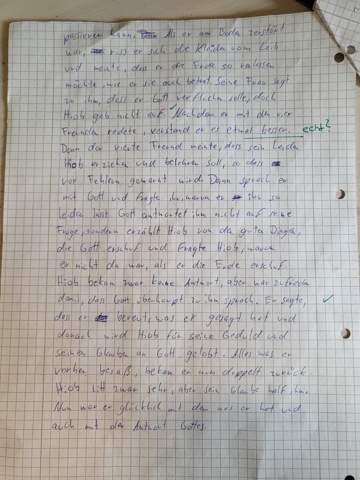 passieren kann. Als er am Boden zerstört
war, riss er sich die Kleider vom Leib
und meinte, dass er die Erde so verlassen
möchte wie er sie auch betrat. Seine Frau sagt
zu ihm, dass er Gott verfluchen solle, doch
Hiob gab nicht auf. Nachdem er mit den vier
Freunden redete, verstand er es etwas besser. echt?
Denn der vierte Freund meinte, dass sein Leiden
Hiob erziehen und belehren soll, so dass
vor Fehlern gewarnt wird. Dann sprach er
mit Gott und fragte ihn, warum er ihn so
leiden lässt. Gott antwortet ihm nicht auf seine
Frage, sondern erzählt Hiob von den guten Dingen,
die Gott erschuf und fragte Hiob, warum
er nicht da war, als er die Erde erschuf.
Hiob bekam zwar keine Antwort, aber war zufrieden
damit, dass Gott überhaupt zu ihm sprach. Er sagte,
dass er bereut, was er gesagt hat und
danach wird Hiob für seine Geduld und
seinen Glauben an Gott gelobt. Alles was er
vorher besaß, bekam er nun doppelt zurück.
Hiob litt zwar sehr, aber sein Glaube half ihm.
Nun war er glücklich mit dem was er hat und
auch mit der Antwort Gottes.